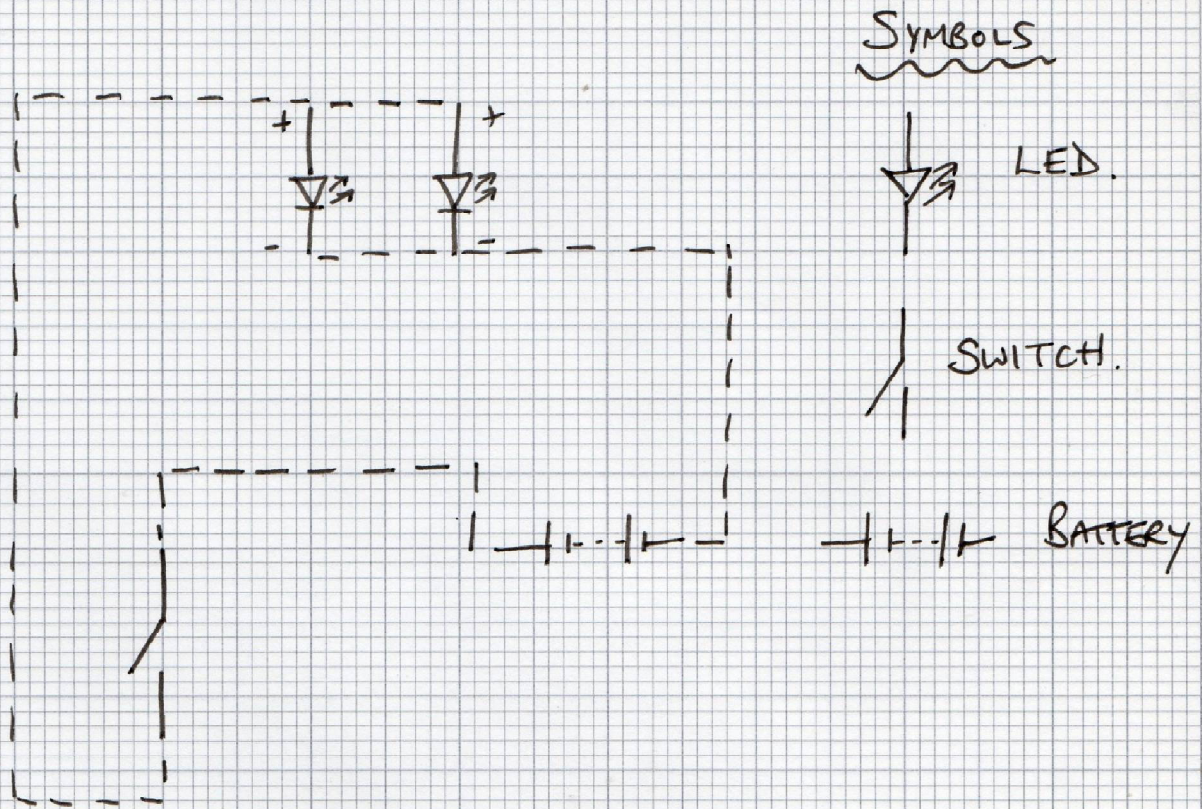 SYMBOLS
+ +
LED.
- -
SWITCH.
BATTERY